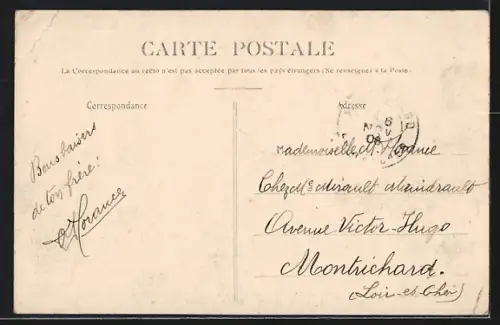 CARTE POSTALE
La Correspondance au recto n'est pas acceptée par tous les pays étrangers (Se renseigner à la Poste)
Correspondance
Adresse
Bons baisers
de ton frère!
Morance
Mademoiselle M. Morance
Chez Me Mirault
Avenue Victor-Hugo
Montrichard.
(Loir-et-Cher)